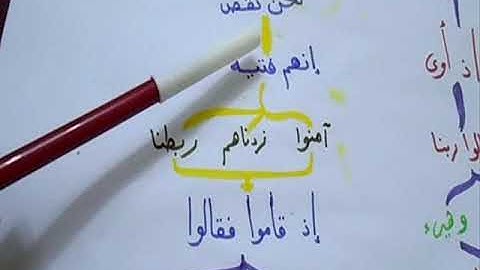 نحن نقص
إنهم فتية
آمنوا زدناهم ربطنا
إذ قاموا فقالوا
إذ أوى
ربنا
وهيء